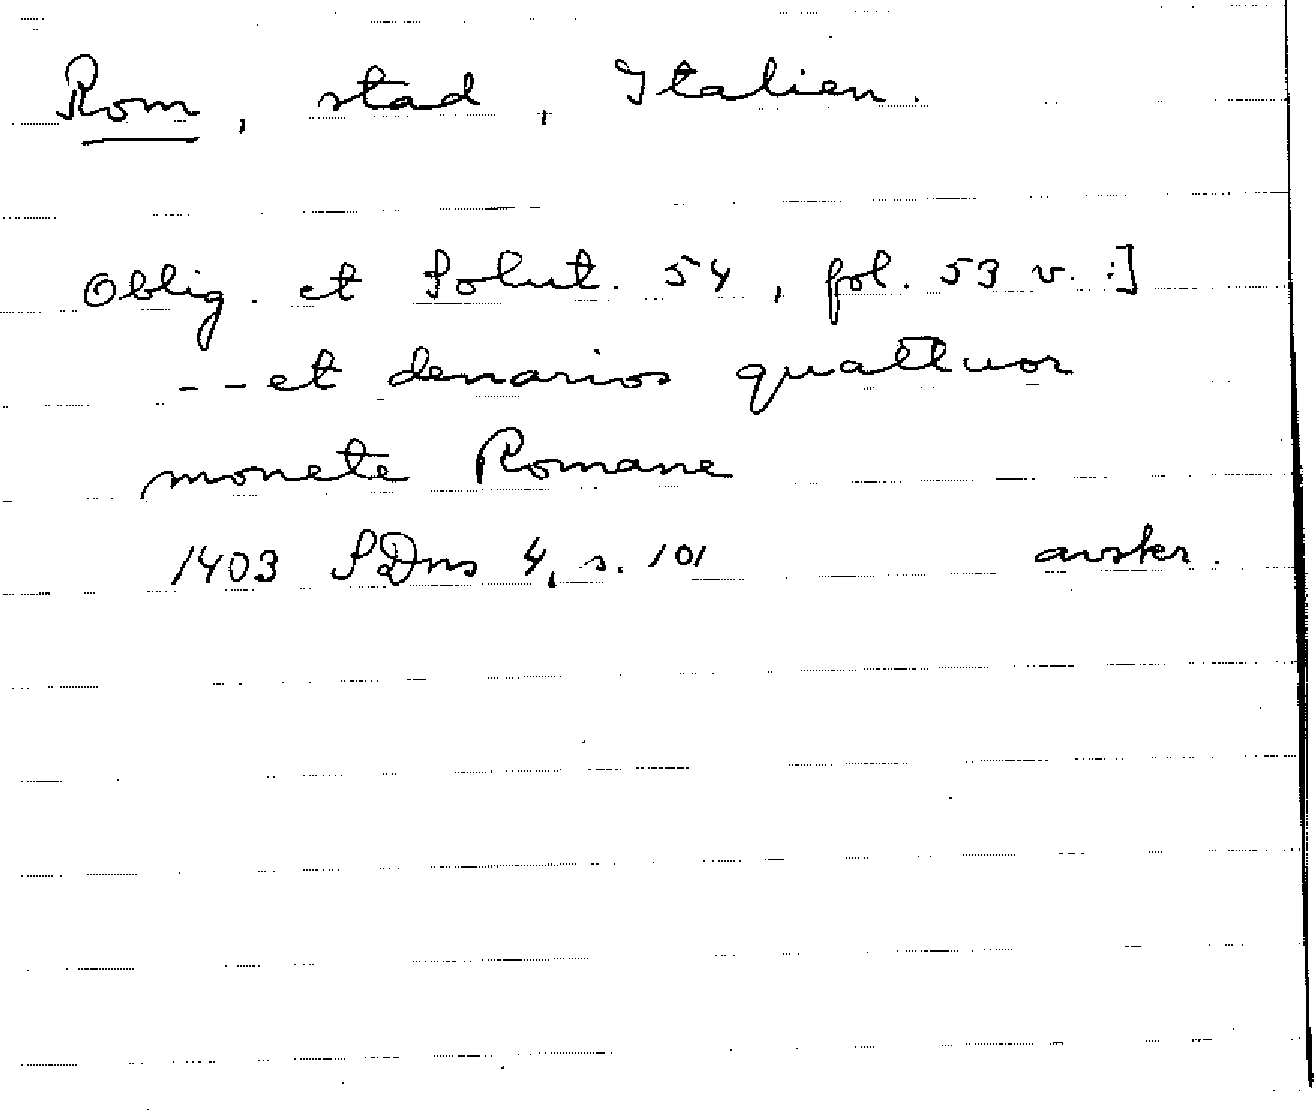 Rom, stad, Italien.
Oblig. et Solut. 54, fol. 53 v. :]
-- et denarios quattuor
monete Romane
1403 SDns 4, s. 101 avskr.